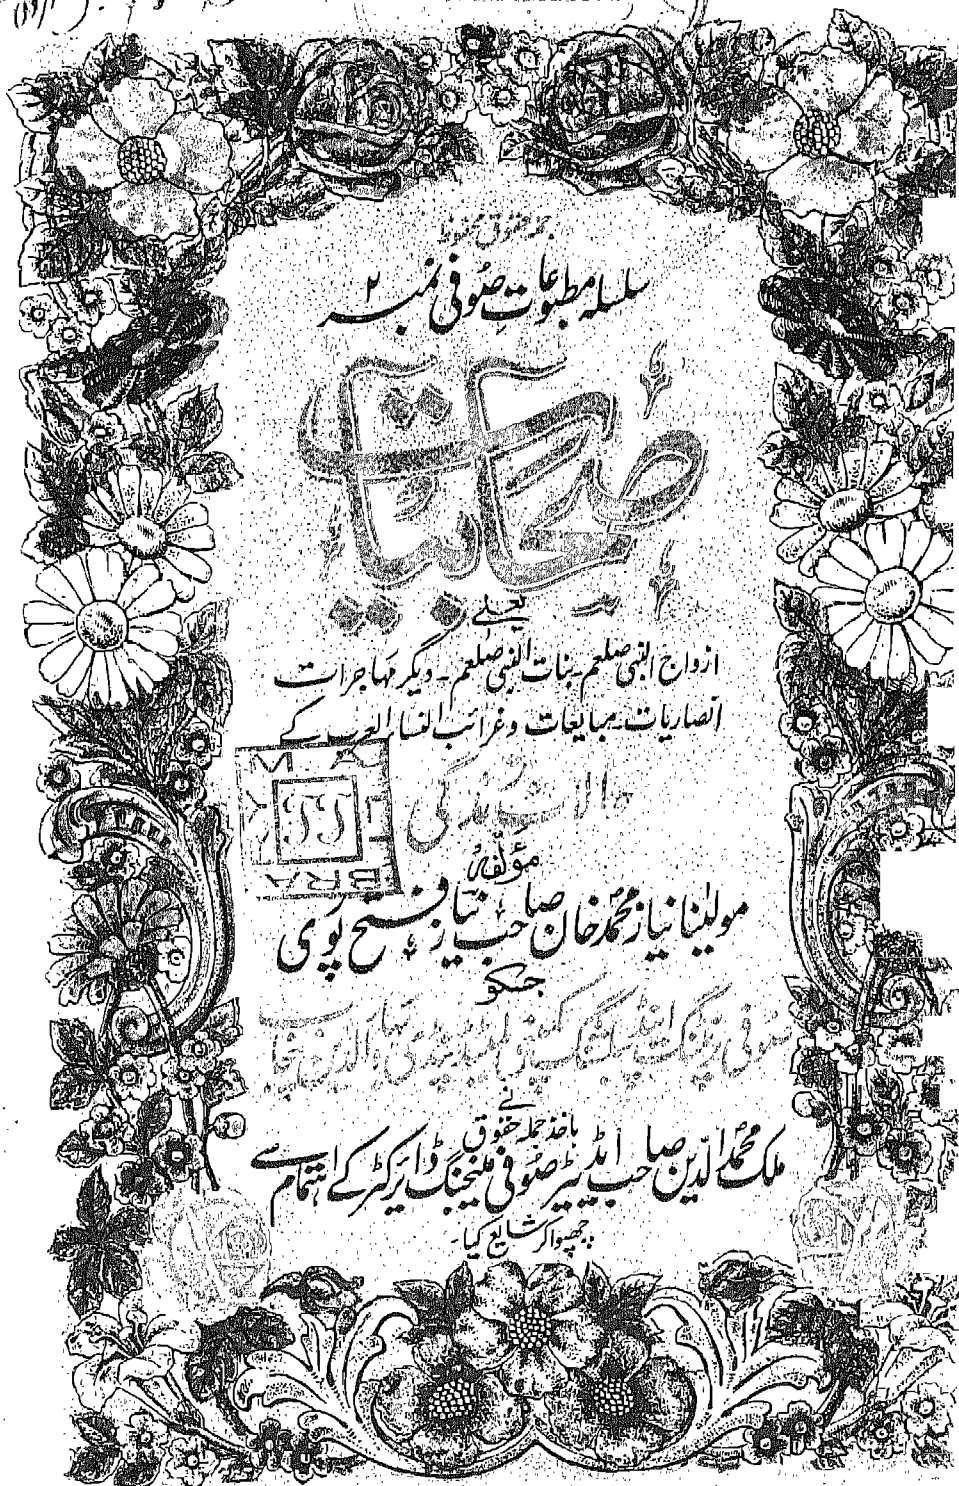 جملہ حقوق محفوظ
سلسلہ مطبوعات صوفی نمبر ۲
صحابیات
یعنے
ازواج النبی صلعم۔ بنات النبی صلعم۔ دیگر مہاجرات
انصاریات۔ مبایعات وغرائب النساء العرب کے
حالات زندگی
مؤلفہ
مولینا نیاز محمد خان صاحب نیاز فتح پوری
جسکو
صوفی پرنٹنگ اینڈ پبلشنگ کمپنی لمیٹڈ پنڈی بہاؤالدین پنجاب
نے
باخذ جملہ حقوق
ملک محمد الدین صاحب ایڈیٹر صوفی منیجنگ ڈائرکٹر کے اہتمام سے
چھپوا کر شایع کیا۔